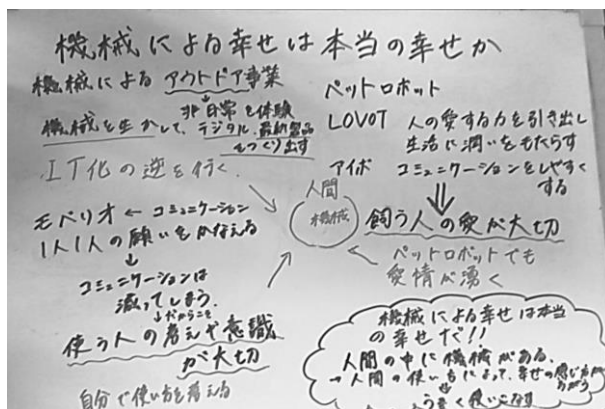 機械による幸せは本当の幸せか
機械によるアウトドア事業
↓
非日常を体験
機械を生かして、デジタル、最新製品
をつくり出す
IT化の逆を行く
モベリオ ← コミュニケーション
1人1人の願いをかなえる
↓
コミュニケーションは
減ってしまう。
↓だからこそ
使う人の考えや意識
が大切
自分で使い方を考える
人間
機械
ペットロボット
LOVOT 人の愛する力を引き出し
生活に潤いをもたらす
アイボ コミュニケーションをしやすく
する
⇓
飼う人の愛が大切
ペットロボットでも
愛情が湧く
機械による幸せは本当
の幸せだ!!
人間の中に機械がある。
→人間の使い方によって、幸せの感じ方が
うまく使いこなす